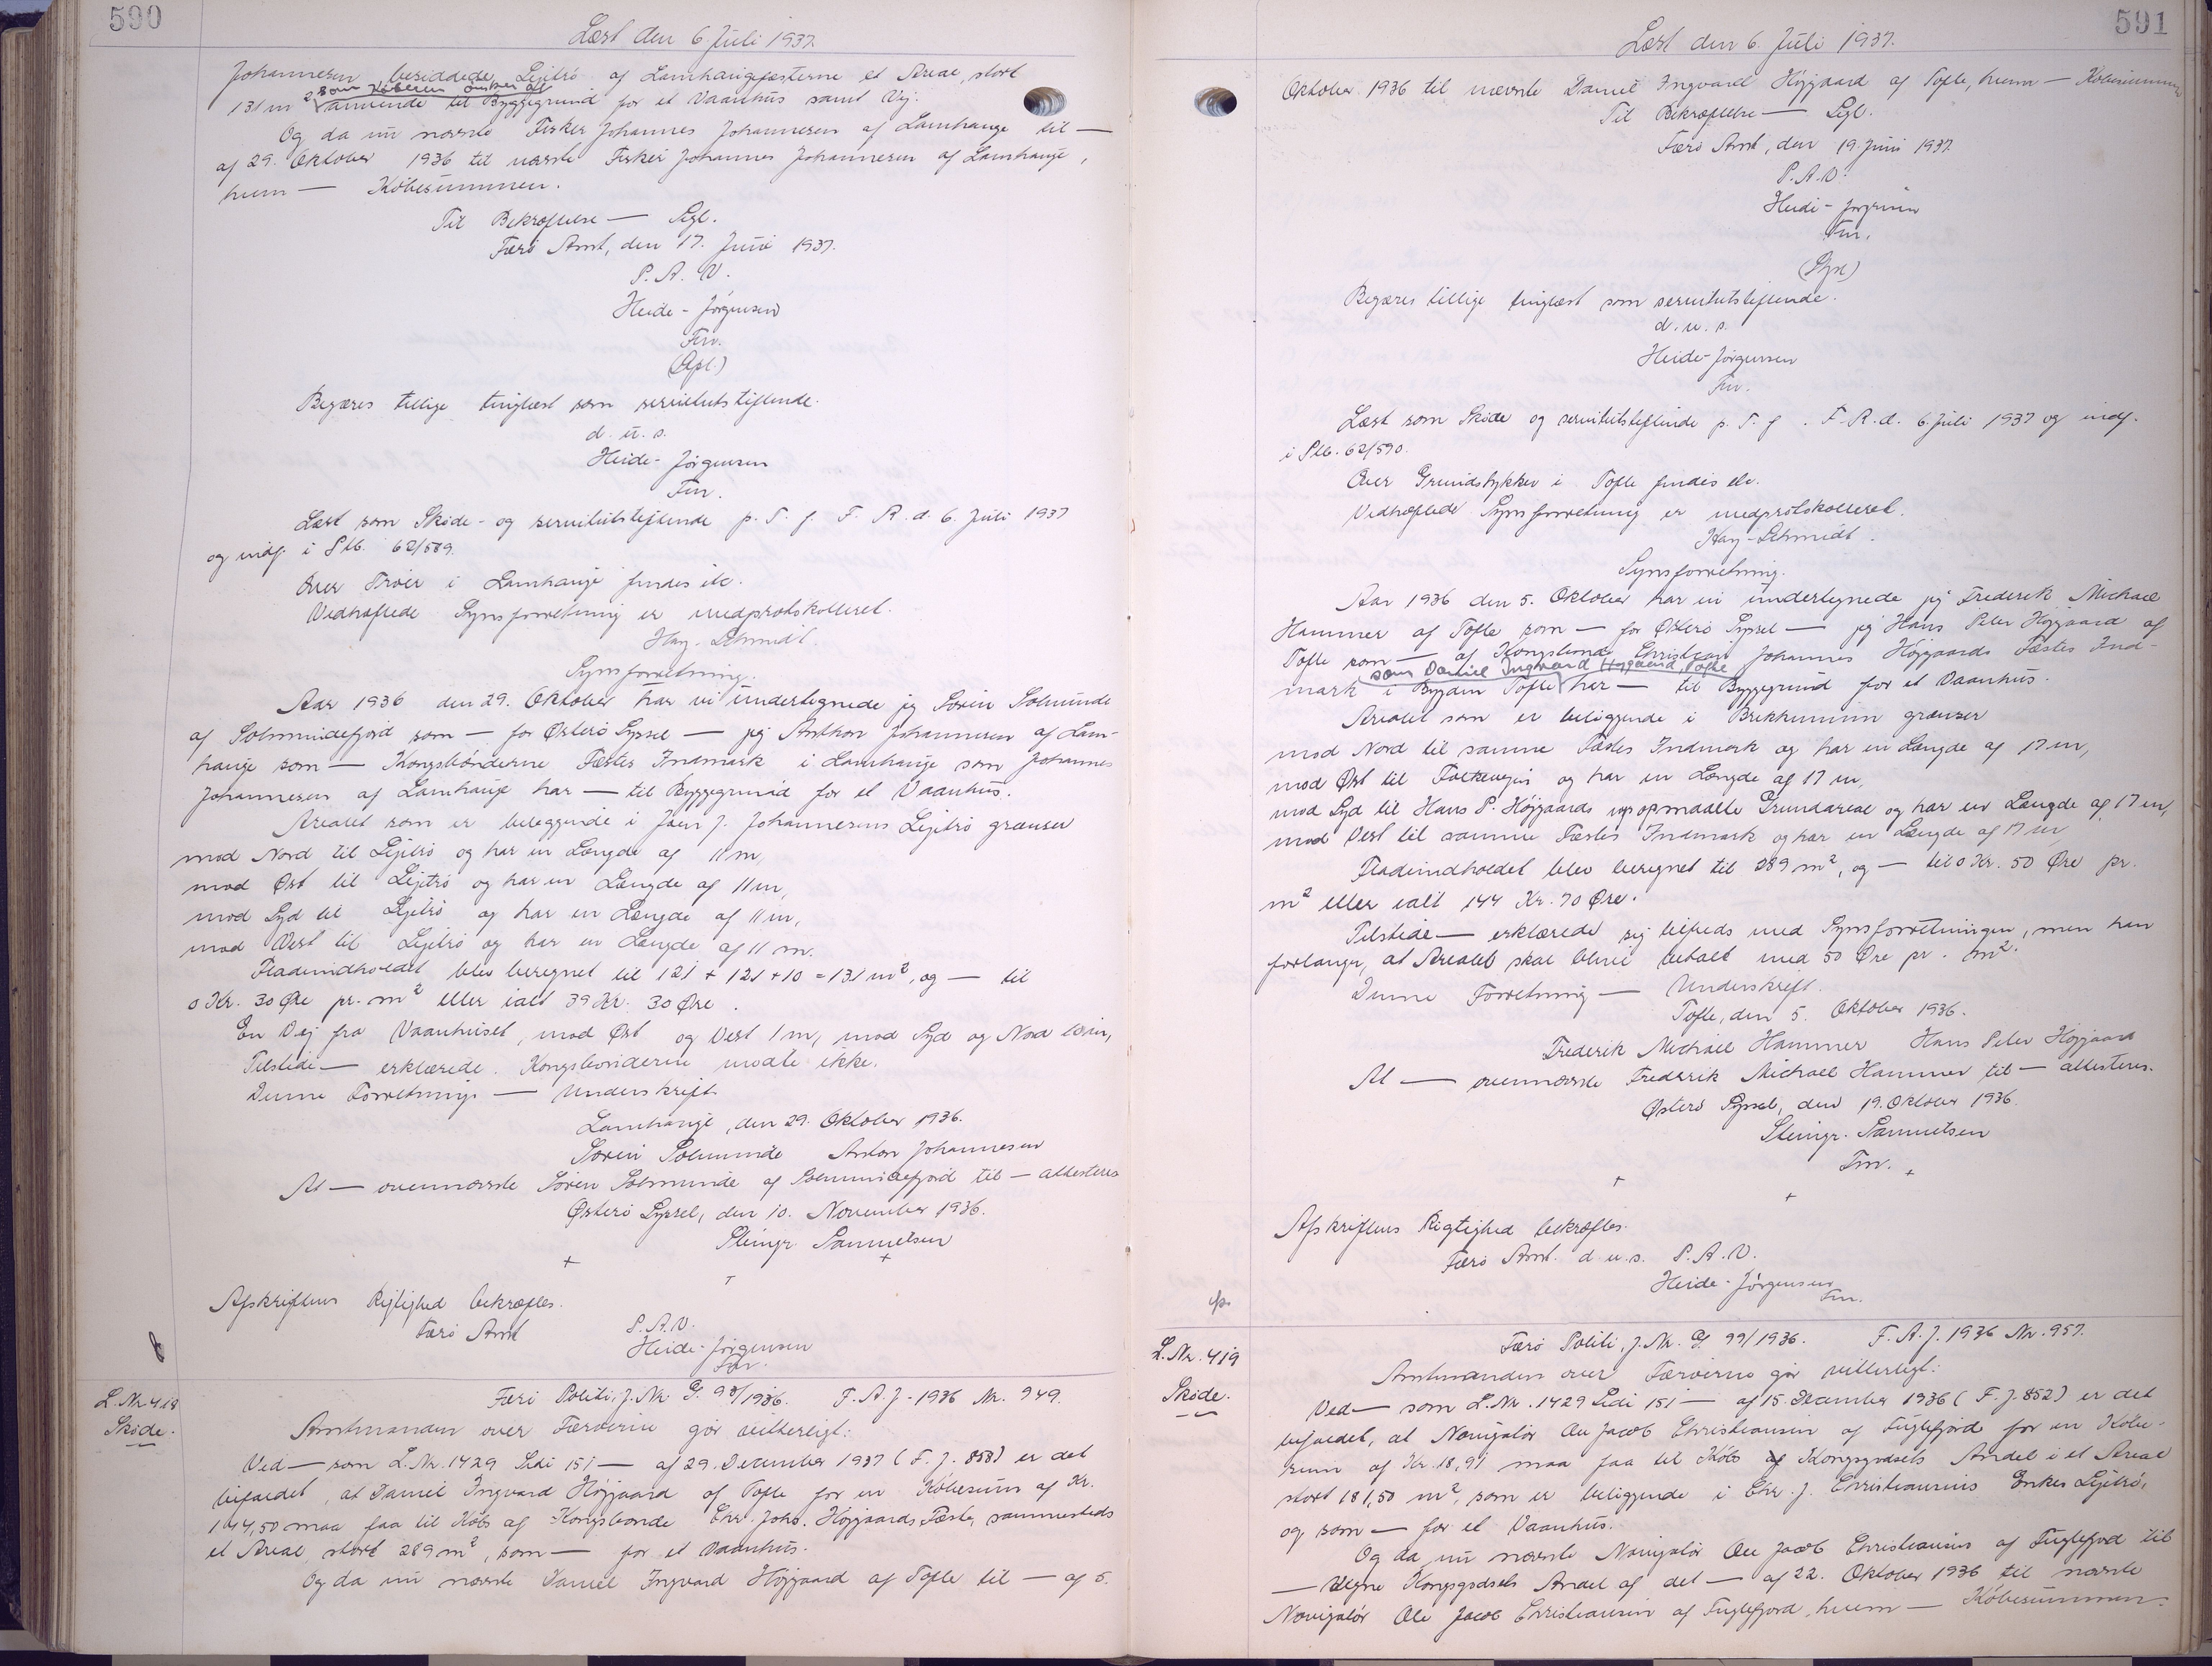 590
Læst den 6. Juli 1937.
Johannesen besiddede Lejitrö af Lamhaugefæsterne et Areal, stort
som Køberen ønsker at
131 m² anvende til Byggegrund for et Vaanhus samt Vej.
Og da nu nævnte Fisker Johannes Johannesen af Lamhauge til —
af 29. Oktober 1936 til nævnte Fisker Johannes Johannesen af Lamhauge,
hvem — Købesummen.
Til Bekræftelse — Segl.
Færö Amt, den 17. Juni 1937.
P. A. V.
Heide-Jørgensen
Fm.
Begæres tillige tinglæst som servitutstiftende.
d. u. s.
Heide-Jörgensen
Fm.
Læst som Skøde- og servitutstiftende p. T. f. F. R. d. 6. Juli 1937
og indf. i SLb. 62/589.
Over Tröer i Lamhauge findes etc.
Vedhæftede Synsforretning er medprotokolleret.
Hay-Schmidt.
Synsforretning.
Aar 1936 den 29. Oktober har vi undertegnede jeg Sören Solmunde
af Solmundefjord som — for Österö Syssel — jeg Anthon Johannesen af Lam-
hauge som — Kongsbönderne Fæstes Indmark i Lamhauge som Johannes
Johannesen af Lamhauge har — til Byggegrund for et Vaanhus.
Arealet som er beliggende i Joen J. Johannesens Lejitrö grænser
mod Nord til Lejitrö og har en Længde af 11 m,
mod Øst til Lejitrö og har en Længde af 11 m,
mod Syd til Lejitrö og har en Længde af 11 m,
mod Vest til Lejitrö og har en Længde af 11 m.
Fladeindholdet blev beregnet til 121 + 121 + 10 = 131 m², og — til
0 Kr. 30 Øre pr. m² eller ialt 39 Kr. 30 Øre.
En Vej fra Vaanhuset, mod Øst og Vest 1 m, mod Syd og Nord 10 m,
Tilstede — erklærede. Kongsbønderne mødte ikke.
Denne Forretning — Underskrift.
Lamhauge, den 29. Oktober 1936.
Sören Solmunde Anton Johannesen
At — ovennævnte Sören Solmunde af Solmundefjord til — attesteres
Österö Syssel, den 10. November 1936.
Steingr. Samuelsen
+ + +
Afskriftens Rigtighed bekræftes.
Færö Amt P.A.V.
Heide-Jørgensen
Fm.
L. Nr. 418
Skøde.
Færö Politi, J. Nr. G. 98/1936. F. A. J. 1936 Nr. 949.
Amtmanden over Færøerne gör vitterligt:
Ved — som L. Nr. 1429 Lidi 151 — af 29. December 1937 (F. J. 858) er det
bifaldet, at Daniel Ingvard Höjgaard af Tofte for en Købesum af Kr.
144,50 maa faa til Købs af Kongsbonde Chr. Johs. Höjgaards Fæste, sammesteds
et Areal, stort 289 m², som — for et Vaanhus.
Og da nu nævnte Daniel Ingvard Höjgaard af Tofte til — af 5.
591
Læst den 6. Juli 1937.
Oktober 1936 til nævnte Daniel Ingvard Höjgaard af Tofte, hvem — Købesummen
Til Bekræftelse — Segl.
Færö Amt, den 19. Juni 1937
P. A. V.
Heide-Jørgensen
Fm.
Begæres tillige tinglæst som servitutstiftende.
d. u. s.
Heide-Jörgensen
Fm.
Læst som Skøde og servitutstiftende p. T. f. F. R. d. 6. Juli 1937 og indf.
i Slb. 62/590.
Over Grundstykker i Tofte findes etc.
Vedhæftede Synsforretning er medprotokolleret.
Hay-Schmidt.
Synsforretning.
Aar 1936 den 5. Oktober har vi undertegnede jeg Frederik Michael
Hammer af Tofte som — for Österö Syssel — jeg Hans Peter Höjgaard af
Tofte som — af Kongsbonde Christian Johannes Höjgaards Fæstes Ind-
som Daniel Ingvard Höjgaard, Tofte
mark i Bygden Tofte har — til Byggegrund for et Vaanhus.
Arealet som er beliggende i grænser
mod Nord til samme Fæstes Indmark og har en Længde af 17 m,
mod Øst til og har en Længde af 17 m,
mod Syd til Hans P. Höjgaards opmaalte Grundareal og har en Længde af 17 m,
mod Vest til samme Fæstes Indmark og har en Længde af 17 m,
Fladeindholdet blev beregnet til 289 m², og — til 0 Kr. 50 Øre pr.
m² eller ialt 144 Kr. 70 Øre.
Tilstede — erklærede sig tilfreds med Synsforretningen, men han
forlanger, at Arealet skal blive betalt med 50 Øre pr. m².
Denne Forretning — Underskrift.
Tofte, den 5. Oktober 1936.
Frederik Michael Hammer Hans Peter Höjgaard
At — ovennævnte Frederik Michael Hammer til — attesteres.
Österö Syssel, den 19. Oktober 1936.
Steingr. Samuelsen
Fm.
+ + +
Afskriftens Rigtighed bekræftes.
Færö Amt. d. u. s. P. A. V.
Heide-Jörgensen
Fm.
L. Nr. 419
Skøde.
Færö Politi, J. Nr. G 99/1936. F. A. J. 1936 Nr. 957.
Amtmanden over Færøerne gör vitterligt:
Ved — som L. Nr. 1429 Lidi 151 — af 15. December 1936 (F. J. 852) er det
bifaldet, at Navigatör Ole Jacob Christiansen af Fuglefjord for en Købe-
sum af Kr. 18,91 maa faa til Købs af Kongsgodsets Andel i et Areal
stort 181,50 m², som er beliggende i Chr. J. Christiansens Enkes Lejitrö,
og som — for et Vaanhus.
Og da nu nævnte Navigatör Ole Jacob Christiansen af Fuglefjord til
— Vegne Kongsgodsets Andel af det — af 22. Oktober 1936 til nævnte
Navigatör Ole Jacob Christiansen af Fuglefjord, hvem — Købesummen.